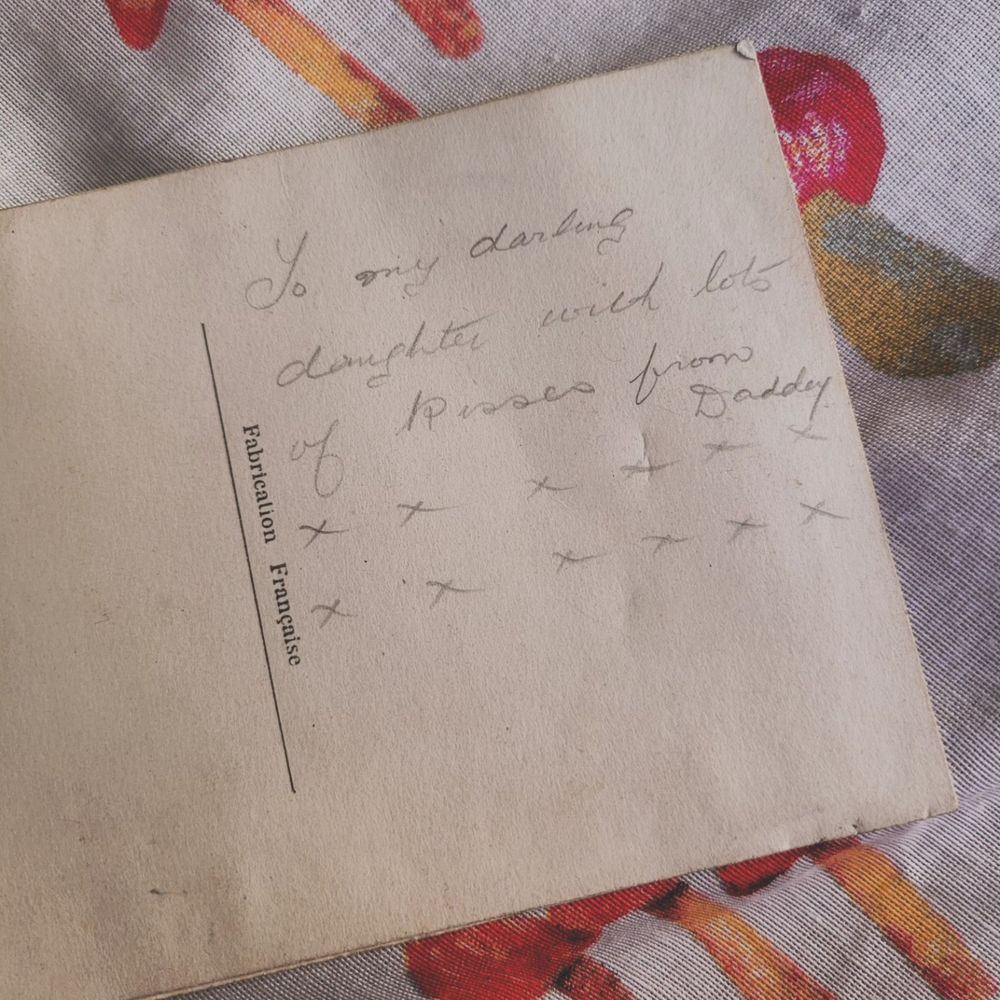 To my darling
daughter with lots
of kisses from
Daddy
x x x x x x
x x x x x x
Fabrication Française